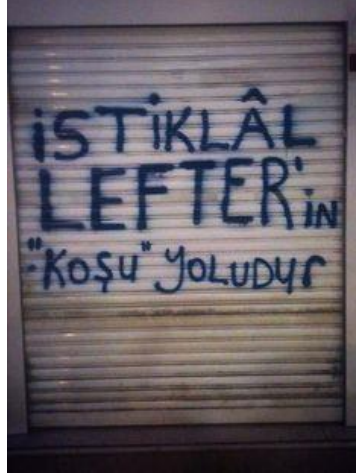 İSTİKLÂL
LEFTER'İN
"KOŞU" YOLUDUR